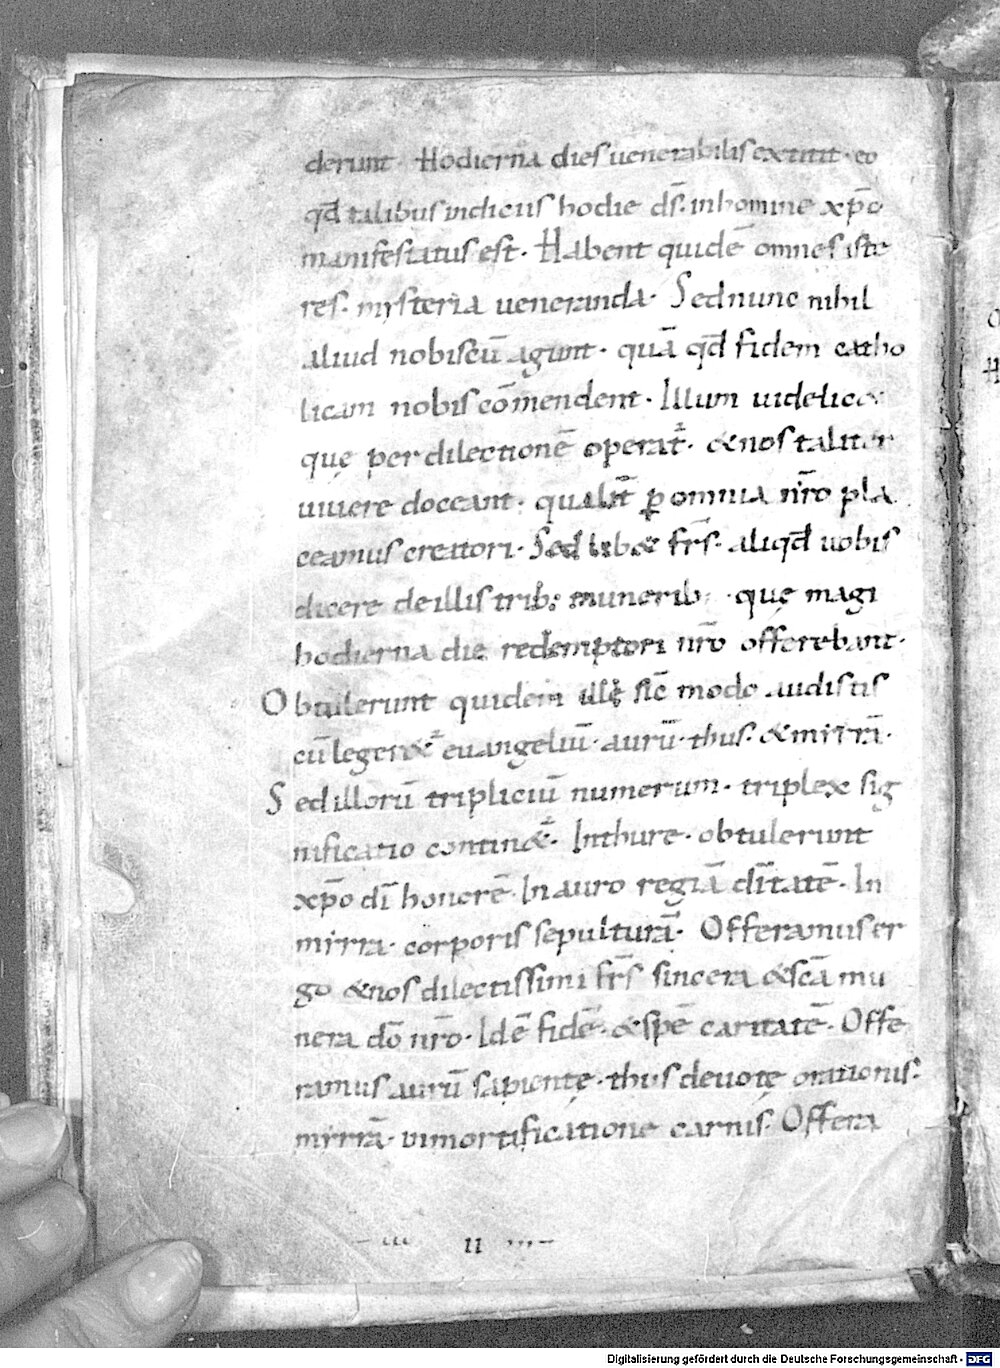 derunt · Hodierna dies uenerabilis extitit · eo
qđ talibus indiciis hodie dſ̄ in homine xp̄o
manifestatus est · Habent quidē omnes iste
res · mysteria ueneranda · Sed nunc nihil
aliud nobiscū agunt · quā qđ fidem catho
licam nobis cōmendent · Illum uidelic&
quę per dilectionē operat̄ · & nos taliter
uiuere doceant · qualit̄ ꝑ omnia nr̄o pla
ceamus creatori · Sed lib& fr̄s · aliqđ uobis
dicere de illis trib; munerib; · quę magi
hodierna die redemptori nr̄o offerebant ·
Obtulerunt quidem illę sic̄ modo audistis
cū leger&̄ euangeliū · aurū · thus · & mirrā ·
Sed illorū tripliciū numerum · triplex sig
nificatio contin&̄ · In thure · obtulerunt
xp̄o dī honorē · In auro regiā dītatē · In
mirra · corporis sepulturā · Offeramus er
go & nos dilectissimi fr̄s sincera & sc̄a mu
nera dō nr̄o · Idē fidē · & spē caritatē · Offe
ramus aurū sapientę · thus deuotę orationis ·
mirrā · in mortificatione carnis · Offera
II
Digitalisierung gefördert durch die Deutsche Forschungsgemeinschaft - DFG